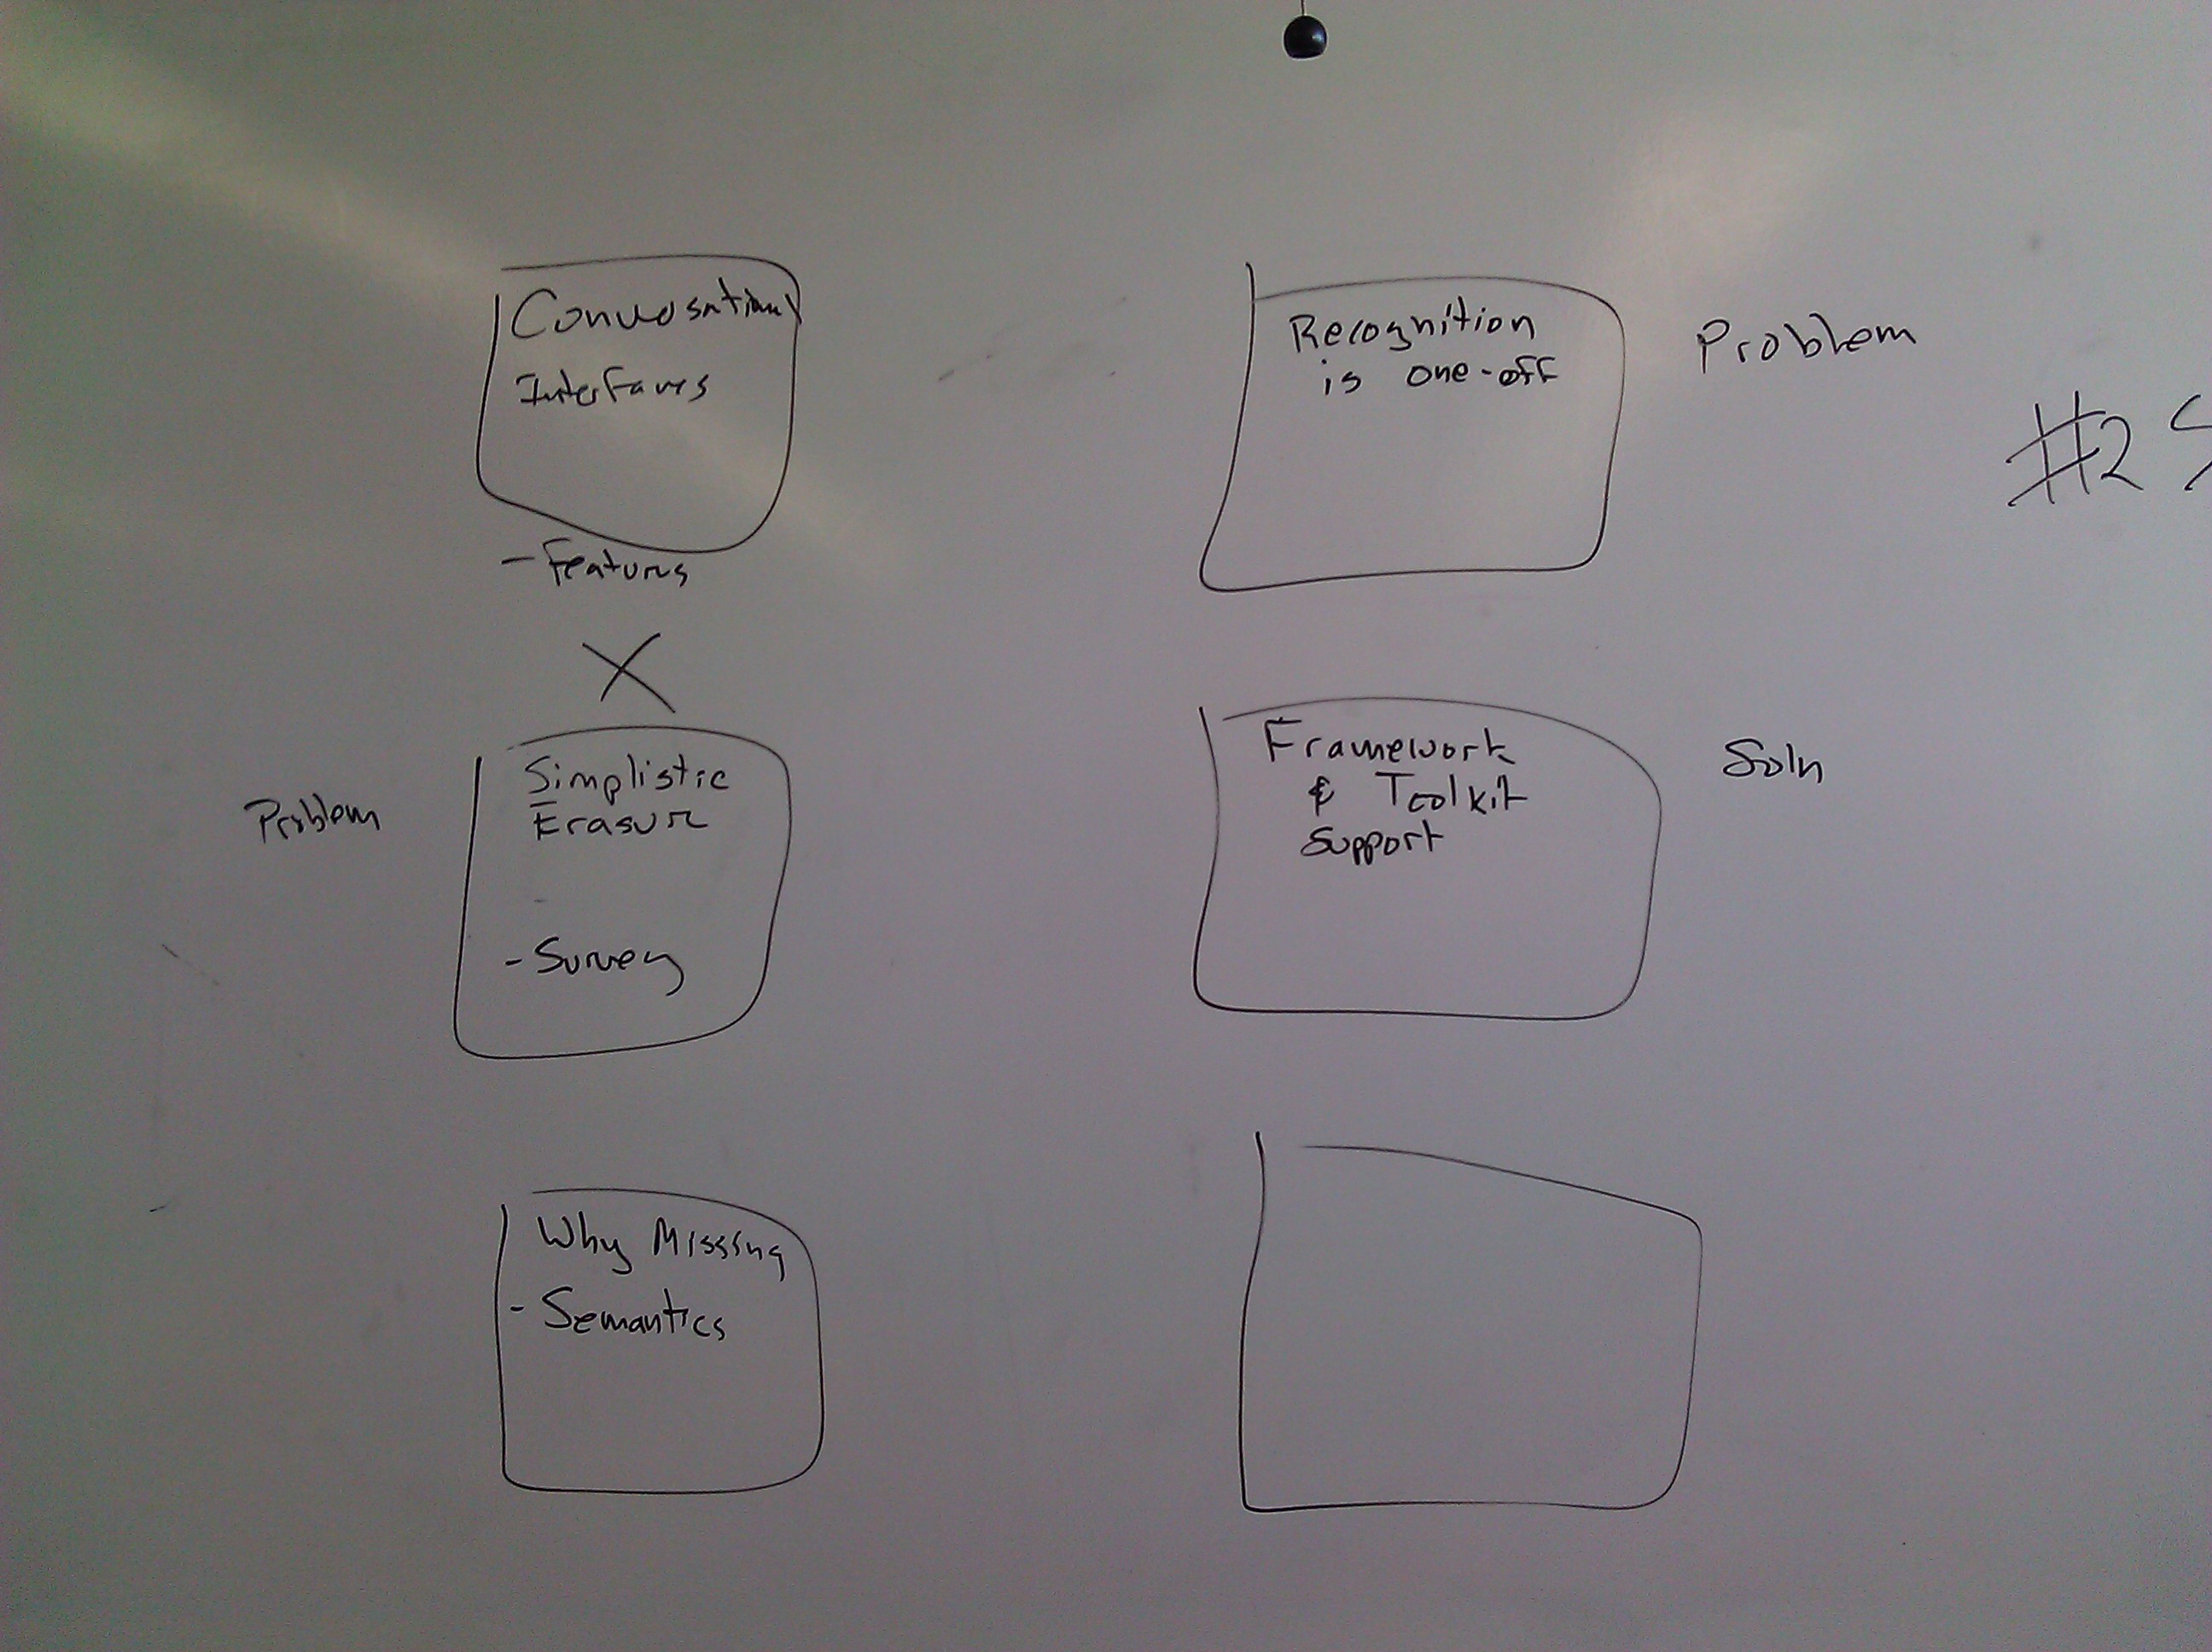 Conversational
Interfaces
- Features
X
Problem
Simplistic
Erasure
- Survey
Why Missing
- Semantics
Recognition
is one-off
Problem
Framework
& Toolkit
Support
Soln
#2